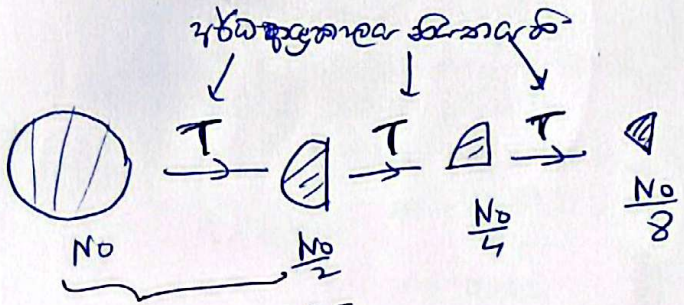 අර්ධ ආයුකාලය නියතයකි
T T T
No No/2 No/4 No/8